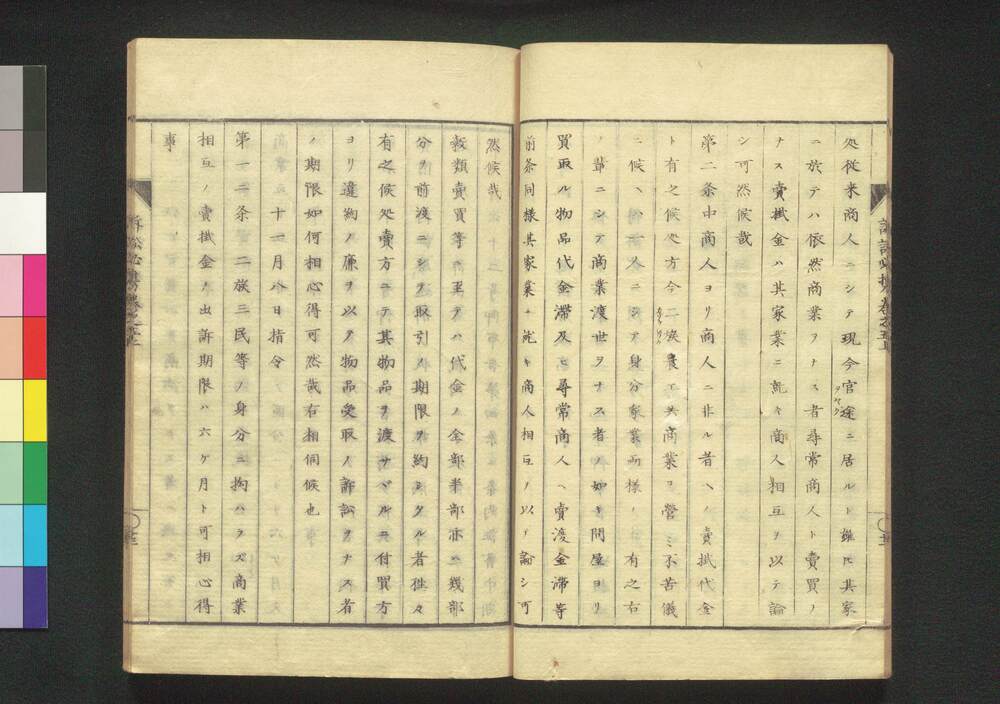 処従来商人ニシテ現今官途ニ居ルト雖𪜈其家
ニ於テハ依然商業ヲナス者尋常商人ト賣買ノ
ナス賣掛金ハ其家業ニ就キ商人相互ヲ以テ論
シ可然候哉
第二条中商人ヨリ商人ニ非ル者ヘノ賣掛代金
ト有之候処方今二族農工共商業ヲ營ミ不苦儀
ニ候ヘハ一人ニシテ身分家業両様ノ有之右
ノ輩ニシテ商業渡世ヲナス者ノ如キ問屋ヨリ
買取ル物品代金滞及ヒ尋常商人ヘ賣渡金滞等
前条同様其家業ニ就キ商人相互ノ以テ論シ可
然候哉
穀類賣買等ニ至テハ代金ノ全部半部亦ハ幾部
分ヲ前渡ニシテ取引ノ期限ヲ約シタル者往々
有之候処賣方ニテ其物品ヲ渡サヾルニ付買方
ヨリ違約ノ廉ヲ以テ物品受取ノ訴訟ヲナス者
ノ期限如何相心得可然哉右相伺候也
十一月八日指令
第一二条二族三民等ノ身分ニ拘ハラズ商業
相互ノ賣掛金ノ出訴期限ハ六ケ月ト可相心得
事
訴訟必携巻之五上